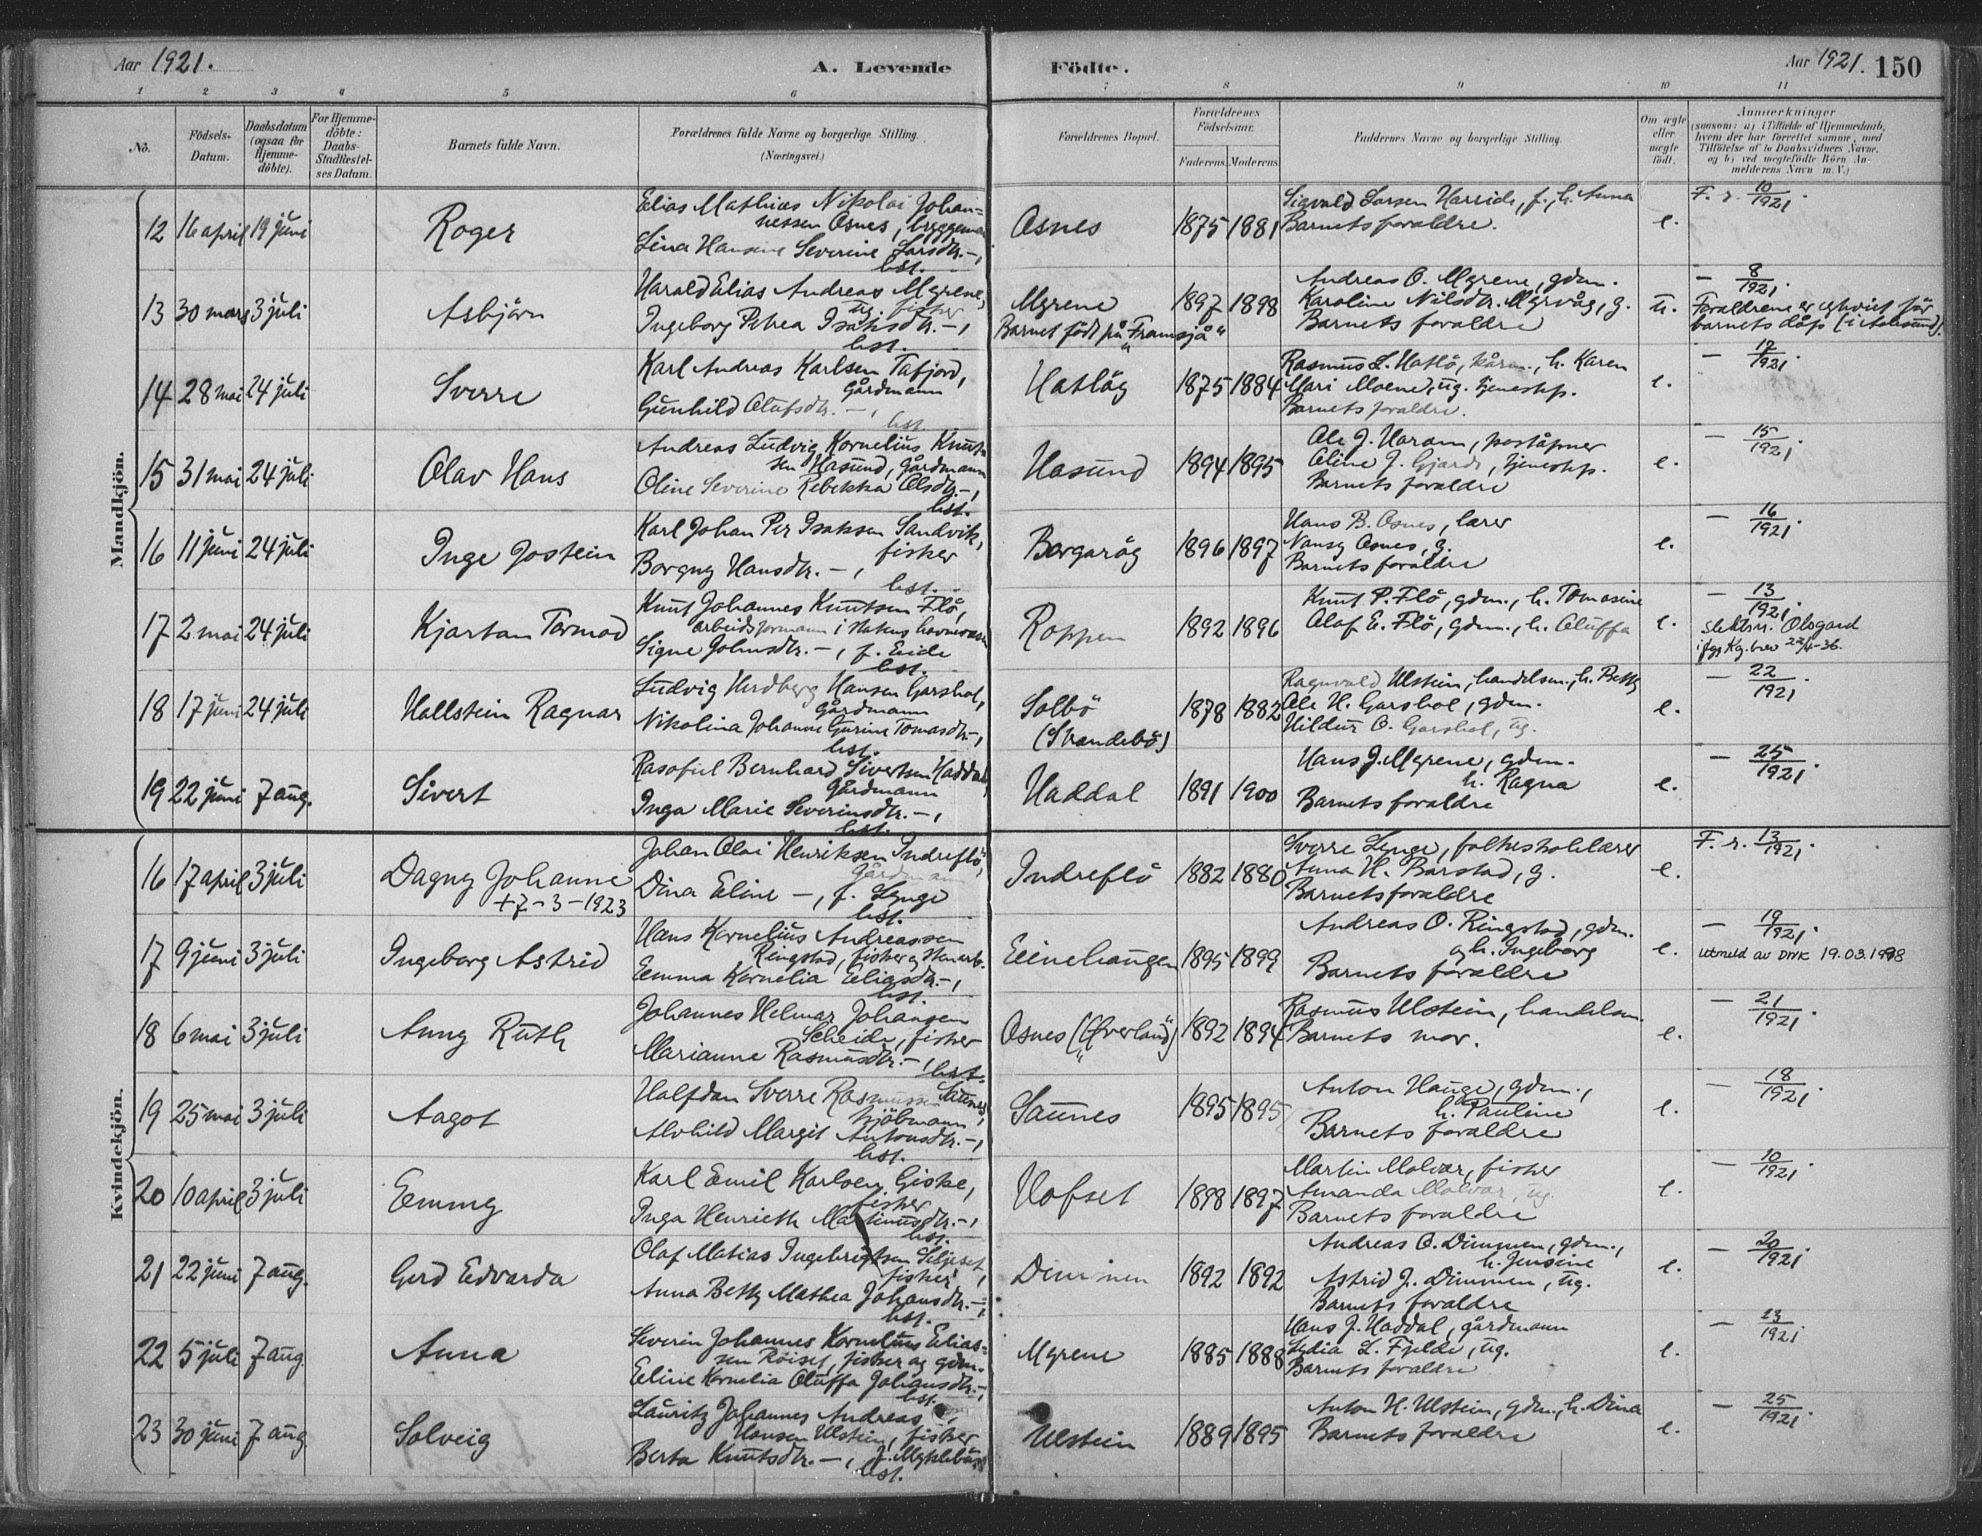 Aar 1921. A. Levende Födte. Aar 1921. 150
1 2 3 4 5 6 7 8 9 10 11
No. Födsels-Datum. Daabsdatum (ogsaa for Hjemme-döbte). For Hjemme-döbte: Daabs-Stadfæstel-ses Datum. Barnets fulde Navn. Forældrenes fulde Navne og borgerlige Stilling. (Næringsvei.) Forældrenes Bopæl. Forældrenes Födselsaar. Faderens. Moderens. Faddernes Navne og borgerlige Stilling. Om ægte eller uægte födt. Anmærkninger
(saasom: a) i Tilfælde af Hjemmedaab, hvem der har forrettet samme, med Tilföielse af to Daabsvidners Navne, og b) ved uægtefödte Börn An-melderens Navn m. V.)
Mandkjön.
12 16 april 19 juni Roger
Elias Mathias Nikolai Johan-
nessen Osnes, byggem
Lina Hansine Severine Larsdtr. —,
bst.
Osnes 1875 1881
Sigvald Larsen Hareide, f., h. Anna
Barnets foraldre.
e. F. r. 10/1921.
13 30 mars 3 juli Asbjörn
Harald Elias Andreas Myrene,
ug. fisker
Ingeborg Petrea Isaksdtr. —,
bst.
Myrene 1897 1898
Barnet födt på "Framsjå"
Andreas O. Myrene, gdm.
Karoline Nilsdtr. Myrvåg, g.
Barnets foraldre
u. — 8/1921.
Foraldrene er egteviet för
barnets dåp (i Aalesund).
14 28 mai 24 juli Sverre
Karl Andreas Karlsen Tafjord,
Gårdmann
Gunhild Olufsdtr. —,
bst.
Hatlöy 1875 1884
Rasmus L. Hatlö, kårm., h. Karen
Mari Moene, ug. tjenestep.
Barnets foraldre.
e. — 12/1921.
15 31 mai 24 juli Olav Hans
Andreas Ludvig Kornelius Knut-
sen Hasund, gårdmann
Oline Severine Rebekka Olsdtr. —,
bst.
Hasund 1894 1895
Ole J. Haram, poståpner
Oline J. Gjerde, tjenestep.
Barnets foraldre
e. — 15/1921.
16 11 juni 24 juli Inge Jostein
Karl Johan Per Isaksen Sandvik,
fisker
Borgny Hansdtr. —,
bst.
Borgaröy 1896 1897
Hans B. Osnes, lærer
Nansy Osnes, g.
Barnets foraldre
e. — 16/1921.
17 2 mai 24 juli Kjartan Tormod
Knut Johannes Knutsen Flö,
arbeidsformann i statens havnevesen
Signe Johnsdtr. —, f. Eide
bst.
Roppen 1892 1896
Knut P. Flö, gdm., h. Tomasine
Olaf E. Flö, gdm., h. Oluffa
e. — 13/1921.
slektsn. Olsgard
ifgr Kg.brev 22/4-36.
18 17 juni 24 juli Hallstein Ragnar
Ludvig Herdberg Hansen Garshol,
gårdmann
Nikolina Johanne Gurine Tomasdtr. —,
bst.
Solbö 1878 1882
(Skandebö)
Ragnvald Ulstein, handelsm., h. Betty
Ole H. Garshol, gdm.
Hildur O. Garshol, ug.
e. — 22/1921.
19 22 juni 7 aug. Sivert
Rasofiel Bernhard Sivertsen Haddal,
gårdmann
Inga Marie Severinsdtr. —,
bst.
Haddal 1891 1900
Hans J. Myrene, gdm.
h. Ragna
Barnets foraldre
e. — 25/1921.
Kvindekjön.
16 17 april 3 juli Dagny Johanne
+ 7-3-1923
Johan Olai Henriksen Indreflö,
Gårdmann
Dina Eline —, f. Lynge
bst.
Indreflö 1882 1880
Sverre Lynge, folkeskolelærer
Anna H. Barstad, g.
Barnets foraldre
e. F. r. 13/1921.
17 9 juni 3 juli Ingeborg Astrid
Hans Kornelius Andreassen
Ringstad, fisker og stenarb.
Emma Kornelia Eliasdtr. —,
bst.
Einehaugen 1895 1899
Andreas O. Ringstad, gdm.
og h. Ingeborg
Barnets foraldre
e. — 19/1921.
utmeld av DNK 19.03.1998
18 6 mai 3 juli Anny Ruth
Johannes Helmar Johansen
Scheide, fisker
Marianne Rasmusdtr. —,
bst.
Osnes ("Øverland") 1892 1894
Rasmus Ulstein, handelsm.
Barnets mor.
e. — 21/1921.
19 25 mai 3 juli Aagot
Halfdan Sverre Rasmussen Saunes,
kjöbmann
Alvhild Margit Antonsdtr. —,
bst.
Saunes 1895 1895
Anton Hauge, gdm.,
h. Pauline
Barnets foraldre
e. — 18/1921.
20 10 april 3 juli Emmy
Karl Emil Karlsen Giske,
fisker
Inga Henriette Martinusdtr. —,
bst.
Hofset 1898 1897
Martin Molvær, fisker
Amanda Molvær, ug.
Barnets foraldre
e. — 10/1921.
21 22 juni 7 aug. Gerd Edvarda
Olaf Matias Ingebrigtsen Seljeset,
fisker
Anna Betty Mathea Johansdtr. —,
bst.
Dimmen 1892 1892
Andreas O. Dimmen, gdm.,
h. Jensine
Astrid J. Dimmen, ug.
Barnets foraldre
e. — 20/1921.
22 5 juli 7 aug Anna
Severin Johannes Kornelius Elias-
sen Röiset, fisker og gdm.
Eline Kornelia Oluffa Johansdtr. —,
bst.
Myrene 1885 1888
Hans J. Haddal, gårdmann
Lydia L. Fjelde, ug.
Barnets foraldre
e. — 23/1921.
23 30 juni 7 aug Solveig
Lauritz Johannes Andreas
Hansen Ulstein, fisker
Berta Knutsdtr. —, f. Myklebust
bst.
Ulstein 1889 1895
Anton H. Ulstein, gdm., h. Dina
Barnets foraldre
e. — 25/1921.